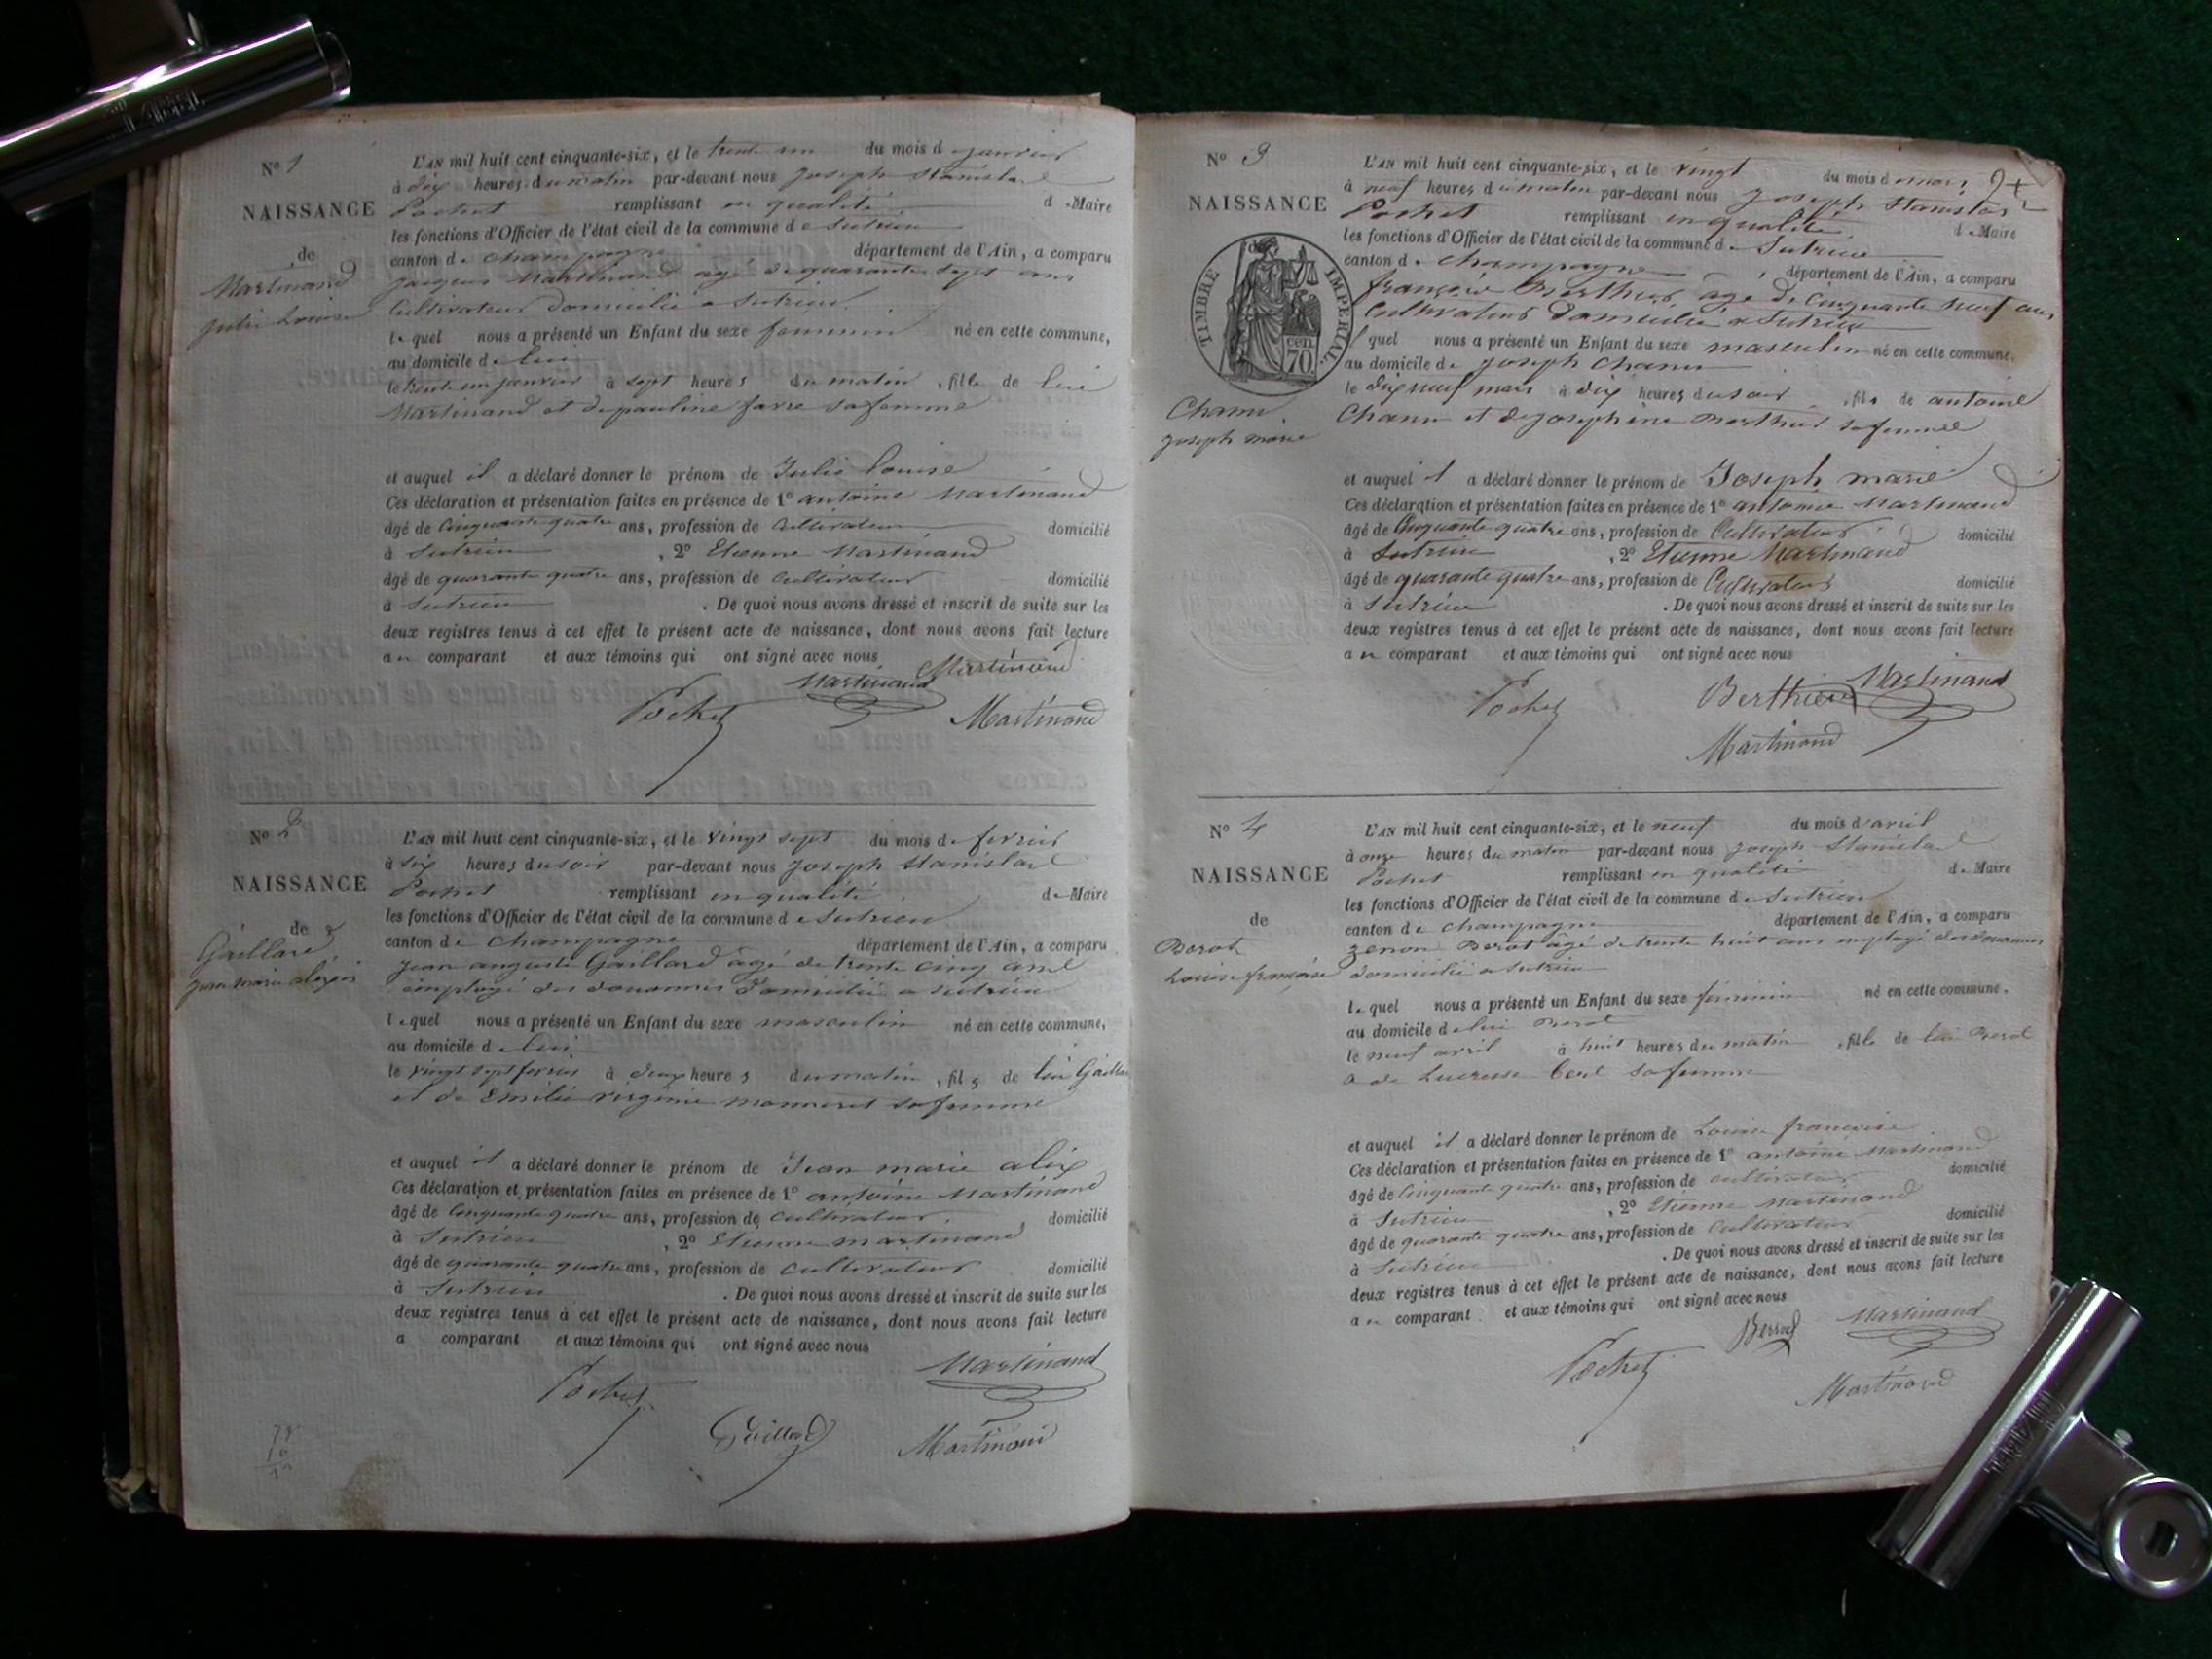 N° 1
NAISSANCE
de
Martinand
julie Louise
L'AN mil huit cent cinquante-six, et le trente un du mois d janvier
à dix heures du matin par-devant nous Joseph Stanislas
Pochet remplissant en qualité de Maire
les fonctions d'Officier de l'état civil de la commune de Sutrieu
canton de champagne département de l'Ain, a comparu
jacques Martinand agé de quarante sept ans
Cultivateur domicilié a Sutrieu
lequel nous a présenté un Enfant du sexe feminin né en cette commune,
au domicile de lui
le trente un janvier à sept heures du matin, fille de lui
Martinand et de pauline favre sa femme
et auquel il a déclaré donner le prénom de Julie Louise
Ces déclaration et présentation faites en présence de 1° antoine Martinand
âgé de Cinquante quatre ans, profession de Cultivateur domicilié
à Sutrieu, 2° Etienne Martinand
âgé de quarante quatre ans, profession de Cultivateur domicilié
à Sutrieu. De quoi nous avons dressé et inscrit de suite sur les
deux registres tenus à cet effet le présent acte de naissance, dont nous avons fait lecture
au comparant et aux témoins qui ont signé avec nous
Martinand Martinand
Pochet Martinand
N° 2
NAISSANCE
de
Gaillard
jean marie
L'AN mil huit cent cinquante-six, et le vingt sept du mois de fevrier
à six heures du soir par-devant nous joseph Stanislas
Pochet remplissant en qualité de Maire
les fonctions d'Officier de l'état civil de la commune de Sutrieu
canton de champagne département de l'Ain, a comparu
jean auguste Gaillard âgé de trente cinq ans
employé des douannes domicilié a Sutrieu
lequel nous a présenté un Enfant du sexe masculin né en cette commune,
au domicile de lui
le vingt sept fevrier à deux heures du matin, fils de lui Gaillard
et de Emilie virginie monneret sa femme
et auquel il a déclaré donner le prénom de Jean marie alix
Ces déclaration et présentation faites en présence de 1° antoine Martinand
âgé de Cinquante quatre ans, profession de Cultivateur, domicilié
à Sutrieu, 2° Etienne martinand
âgé de quarante quatre ans, profession de Cultivateur domicilié
à Sutrieu. De quoi nous avons dressé et inscrit de suite sur les
deux registres tenus à cet effet le présent acte de naissance, dont nous avons fait lecture
a comparant et aux témoins qui ont signé avec nous
Martinand
Pochet
Gaillard Martinand
N° 3
NAISSANCE
TIMBRE IMPERIAL
70 cen.
Chanu
joseph marie
L'AN mil huit cent cinquante-six, et le vingt du mois d mars
à neuf heures du matin par-devant nous joseph Stanislas
Pochet remplissant en qualité de Maire
les fonctions d'Officier de l'état civil de la commune de Sutrieu
canton de Champagne, département de l'Ain, a comparu
françois Berthier âgé de Cinquante neuf ans
Cultivateur domicilié a Sutrieu
lequel nous a présenté un Enfant du sexe masculin né en cette commune,
au domicile de joseph Chanu
le dix neuf mars à dix heures du soir, fils de antoine
Chanu et de josephine Berthier sa femme
et auquel il a déclaré donner le prénom de Joseph marie
Ces déclaration et présentation faites en présence de 1° antoine Martinand
âgé de Cinquante quatre ans, profession de Cultivateur domicilié
à Sutrieu, 2° Etienne Martinand
âgé de quarante quatre ans, profession de Cultivateur domicilié
à Sutrieu. De quoi nous avons dressé et inscrit de suite sur les
deux registres tenus à cet effet le présent acte de naissance, dont nous avons fait lecture
au comparant et aux témoins qui ont signé avec nous
Pochet Berthier Martinand
Martinand
N° 4
NAISSANCE
de
Berot
Louise françoise
L'AN mil huit cent cinquante-six, et le neuf du mois d'avril
à onze heures du matin par-devant nous joseph Stanislas
Pochet remplissant en qualité de Maire
les fonctions d'Officier de l'état civil de la commune de Sutrieu
canton de champagne département de l'Ain, a comparu
zenon Berot âgé de trente huit ans employé des douannes
domicilié a Sutrieu
lequel nous a présenté un Enfant du sexe féminin né en cette commune,
au domicile de lui Berot
le neuf avril à huit heures du matin, fille de lui Berot
sa femme
et auquel il a déclaré donner le prénom de Louise françoise
Ces déclaration et présentation faites en présence de 1° antoine Martinand
âgé de Cinquante quatre ans, profession de cultivateur domicilié
à Sutrieu, 2° Etienne Martinand
âgé de quarante quatre ans, profession de Cultivateur domicilié
à Sutrieu. De quoi nous avons dressé et inscrit de suite sur les
deux registres tenus à cet effet le présent acte de naissance, dont nous avons fait lecture
au comparant et aux témoins qui ont signé avec nous
Pochet Martinand
Martinand